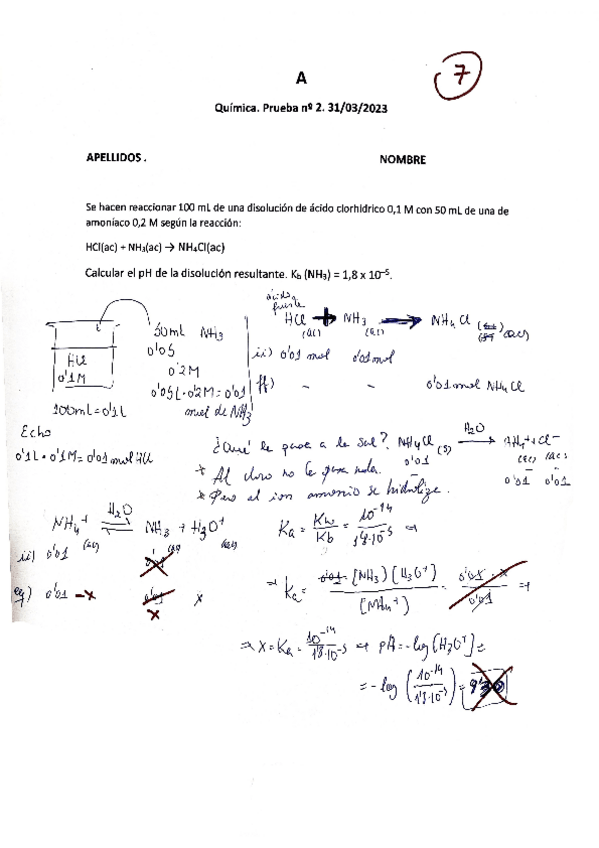 7
A
Química. Prueba nº 2. 31/03/2023
APELLIDOS .
NOMBRE
Se hacen reaccionar 100 mL de una disolución de ácido clorhídrico 0,1 M con 50 mL de una de
amoníaco 0,2 M según la reacción:
HCl(ac) + NH₃(ac) → NH₄Cl(ac)
Calcular el pH de la disolución resultante. Kb (NH₃) = 1,8 x 10⁻⁵.
ácido fuerte
HCl (ac) + NH₃ (ac) → NH₄Cl (ac)
50mL NH₃
0'05
0'2M
ii) 0'01 mol 0'01 mol
HCl
0'1M
0'05L·0'2M=0'01
mol de NH₃
f) - - 0'01 mol NH₄Cl
100mL=0'1L
Echo
0'1L·0'1M=0'01 mol HCl
¿Qué le pasa a la sal? NH₄Cl (s) H₂O → NH₄⁺ + Cl⁻
(ac) (ac)
0'01 - -
0'01 0'01
* Al cloro no le pasa nada.
* Pero al ion amonio se hidroliza.
NH₄⁺ (ac) H₂O ⇌ NH₃ (ac) + H₃O⁺ (ac)
Ka = Kw/Kb = 10⁻¹⁴/1'8·10⁻⁵ ⇒
ii) 0'01
eq) 0'01 -x x x
⇒ Ka = [NH₃][H₃O⁺]/[NH₄⁺] = 0'01·x/0'01 ⇒
⇒ x = Ka = 10⁻¹⁴/1'8·10⁻⁵ ⇒ pH = -log[H₃O⁺] =
= -log (10⁻¹⁴/1'8·10⁻⁵) =